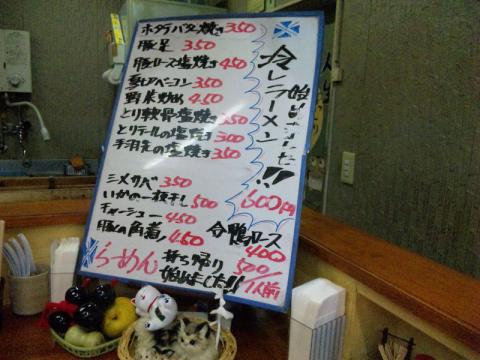 ホタテバター焼き 350
豚足 350
豚ロース塩焼き 450
厚切ベーコン 350
野菜炒め 450
とり軟骨塩焼き 350
とりテールの塩焼き 300
手羽先の塩焼き 350
シメサバ 350
いかの一夜干し 500
チャーシュー 450
豚の角煮 450
冷しラーメン
始めました!!
600円
合鴨ロース
400
らーめん 持ち帰り
始めました!!
500/1人前